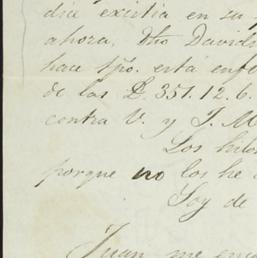 dia existia en su p
ahora, Dho Davids
hace tpo. está enfe
de las £. 351.12.6.
contra V. y J. M
Los hilos
porque no los he
Soy de
Juan me en